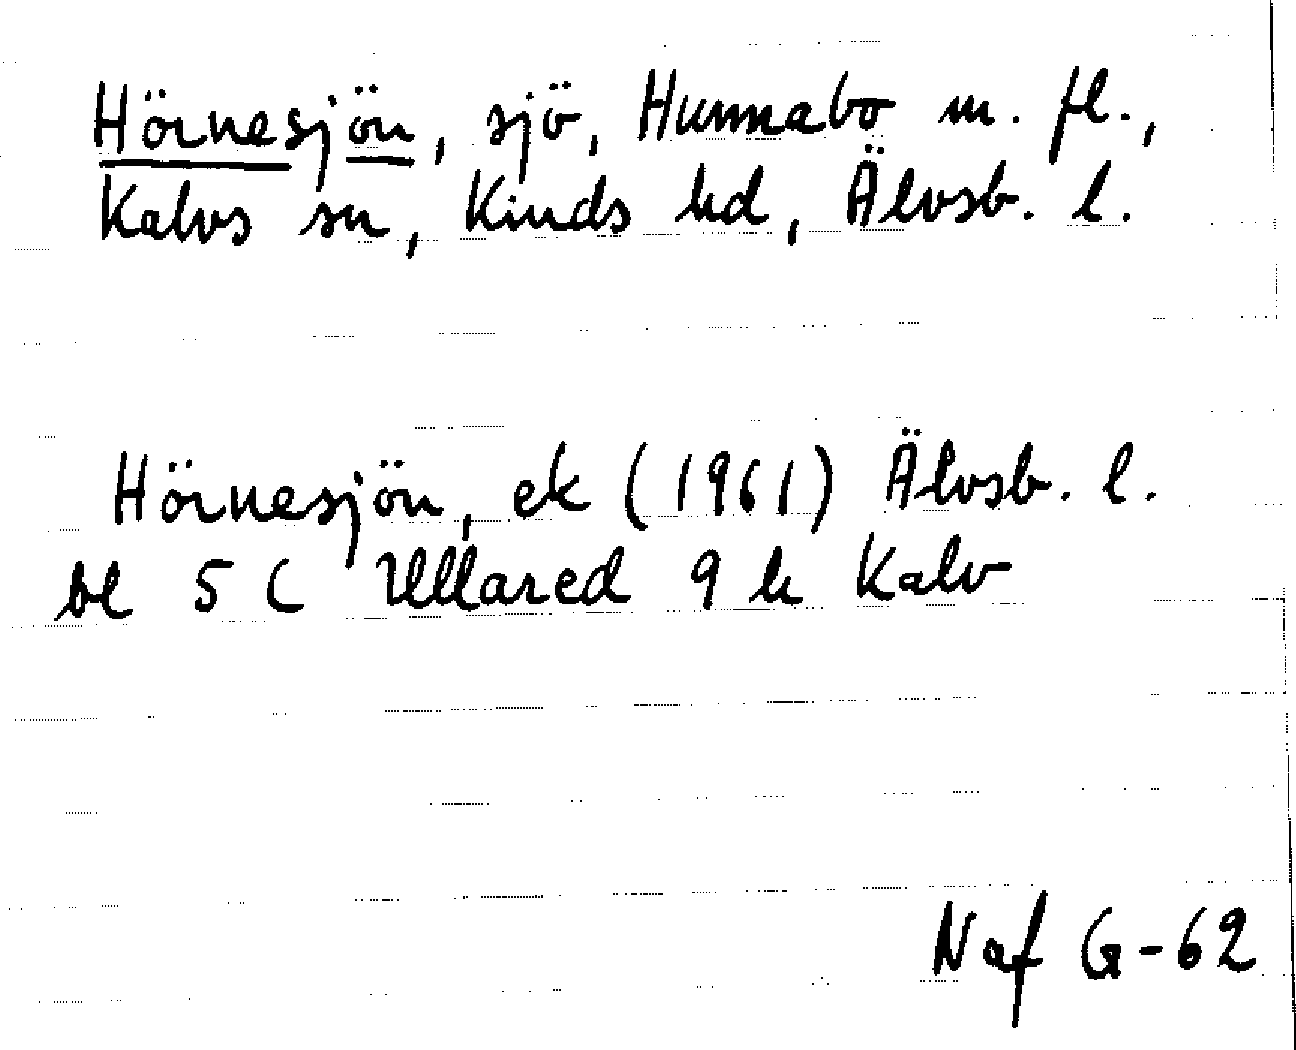 Hörnesjön, sjö, Hunnabo m. fl.,
Kalvs sn, Kinds hd, Älvsb. l.
Hörnesjön, ek (1961) Älvsb. l.
bl 5 C Ullared 9 h Kalv
Naf G-62